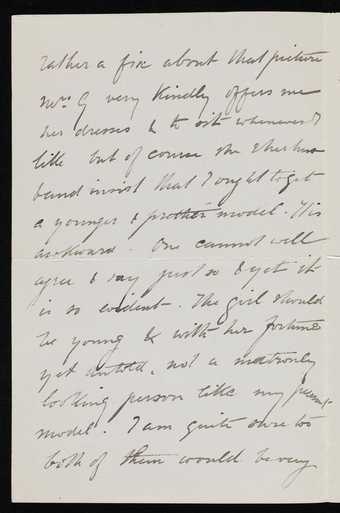 rather a fix about that picture
Mrs G very kindly offers me
her dresses & to sit whenever I
like but of course she & her hus
band insist that I ought to get
a younger & prettier model. It is
awkward. One cannot well
agree & say just so & yet it
is so evident. The girl should
be young & with her fortune
yet untold, not a matronly
looking person like my present
model. I am quite sure too
both of them would be very